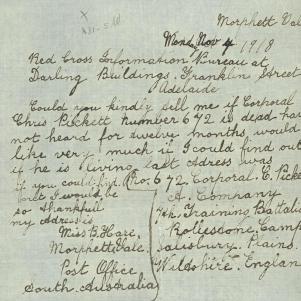 Morphett Val
Mond Nov 4 1918
Red Cross Information Bureau at
Darling Buildings. Franklin Street
Adelaide
Could you kindly tell me if Corporal
Chris Pickett number 642 is dead hav
not heard for twelve months, would
like very much if I could find out
if he is living last adress was
if you could find
out I would be
so thankful
my adress is
Miss B. Hare,
Morphett Vale.
Post Office
South Australia
No. 642. Corporal. C. Picke
A. Company
7th. Training Battalio
Rollestone. Camp
Salisbury. Plains.
Wiltshire. England